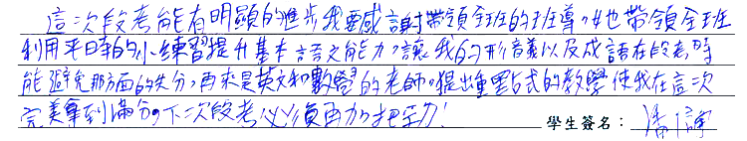 這次段考能有明顯的進步我要感謝帶領全班的班導，她也帶領全班
利用平時的小練習提升基本語文能力，讓我的形音義以及成語在段考時
能避免那方面的失分，再來是英文和數學的老師，提出重點式的教學使我在這次
完美拿到滿分。下次段考必須再加把勁！
學生簽名：潘